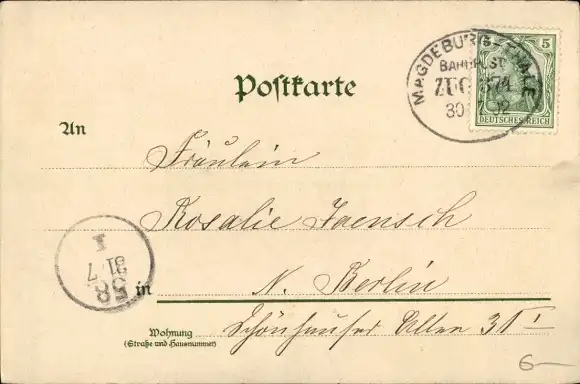 MAGDEBURG THALE
BAHNPOST
ZUG 874
30
5
DEUTSCHES REICH
Postkarte
An
Fräulein
Rosalie Jaensch
in N. Berlin
58
31 7
I
Wohnung
(Straße und Hausnummer)
Schönhauser Allee 31 I
6—